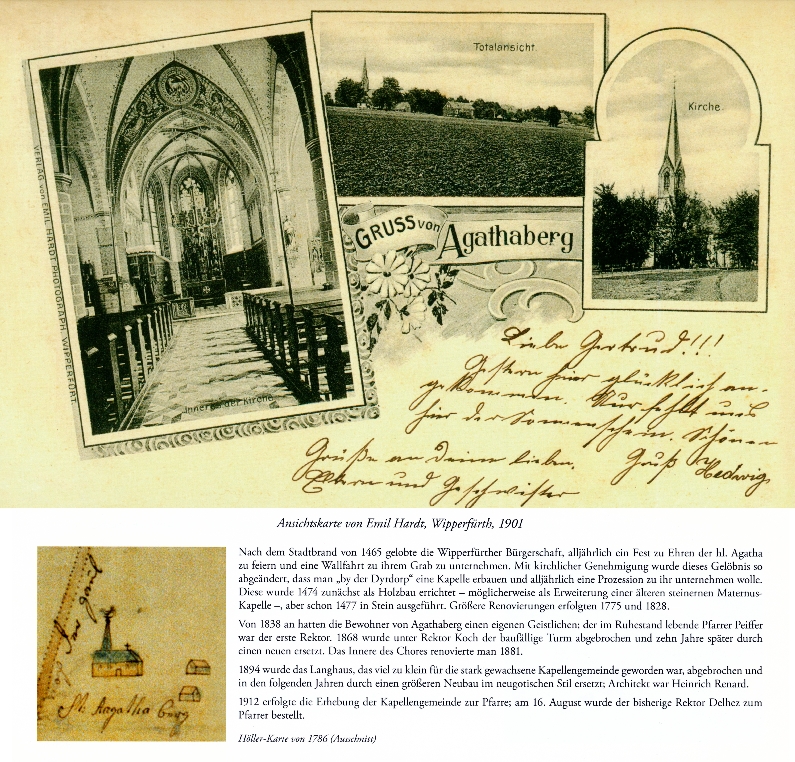 Totalansicht.
Kirche.
VERLAG von EMIL HARDT PHOTOGRAPH. WIPPERFÜRT.
GRUSS von
Agathaberg
Inneres der Kirche
Liebe Gertrud!!!
Gestern hier glücklich an-
gekommen. Nur fehlt uns
hier der Sonnenschein. Schönen
Gruß Hedwig
Grüße an Deine lieben
Eltern und Geschwister
Ansichtskarte von Emil Hardt, Wipperfürth, 1901
Nach dem Stadtbrand von 1465 gelobte die Wipperfürther Bürgerschaft, alljährlich ein Fest zu Ehren der hl. Agatha
zu feiern und eine Wallfahrt zu ihrem Grab zu unternehmen. Mit kirchlicher Genehmigung wurde dieses Gelöbnis so
abgeändert, dass man „by der Dyrdorp“ eine Kapelle erbauen und alljährlich eine Prozession zu ihr unternehmen wolle.
Diese wurde 1474 zunächst als Holzbau errichtet – möglicherweise als Erweiterung einer älteren steinernen Maternus-
Kapelle –, aber schon 1477 in Stein ausgeführt. Größere Renovierungen erfolgten 1775 und 1828.
Von 1838 an hatten die Bewohner von Agathaberg einen eigenen Geistlichen; der im Ruhestand lebende Pfarrer Peiffer
war der erste Rektor. 1868 wurde unter Rektor Koch der baufällige Turm abgebrochen und zehn Jahre später durch
einen neuen ersetzt. Das Innere des Chores renovierte man 1881.
1894 wurde das Langhaus, das viel zu klein für die stark gewachsene Kapellengemeinde geworden war, abgebrochen und
in den folgenden Jahren durch einen größeren Neubau im neugotischen Stil ersetzt; Architekt war Heinrich Renard.
1912 erfolgte die Erhebung der Kapellengemeinde zur Pfarre; am 16. August wurde der bisherige Rektor Delhez zum
Pfarrer bestellt.
St. Aagatha berg
Höller-Karte von 1786 (Ausschnitt)